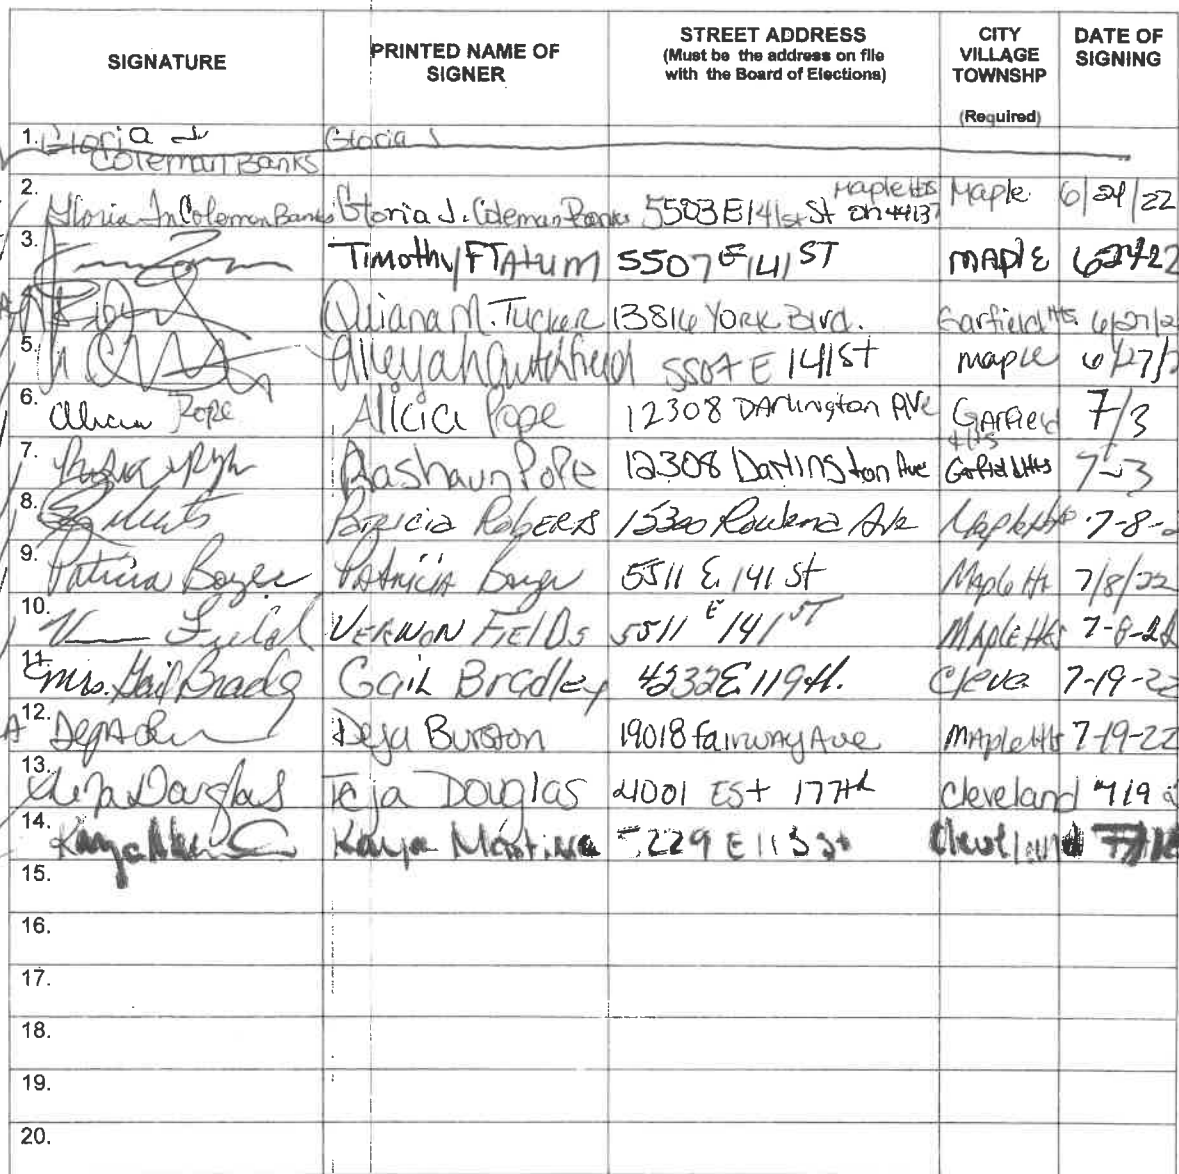 SIGNATURE
PRINTED NAME OF
SIGNER
STREET ADDRESS
(Must be the address on file
with the Board of Elections)
CITY
VILLAGE
TOWNSHP
(Required)
DATE OF
SIGNING
1. Gloria J Gloria J
Coleman Banks
2. Gloria Jn Coleman Banks Gloria J. Coleman Banks 5503 E 141st St Maple Hts OH 44137 Maple 6/24/22
3. Timothy F TAtum 5507 E 141 ST MAPlE 62422
Quiana M. Tucker 13816 York Blvd. Garfield Hts. 6/27/2
5. 5507 E 141st maple 6/27/
6. Alicia Pope Alicia Pope 12308 DArlington AVe GArfield Hts 7/3
7. Rashaun PoPe 12308 Darlington Ave Garfield Hts 7-3
8. Patricia RobERts Ave Maple Hts 7-8-2
9. Patricia Boyer PAtricia Boyer 5511 E. 141 St Maple Hts 7/8/22
10. VERNON FIElDs 5511 E 141 ST MAplE Hts 7-8-22
11. Mrs. Gail Bradley Gail Bradley 4232 E. 119 st. Cleve 7-19-22
12. Deja Burston 19018 fairway Ave MAple Hts 7-19-22
13. Teja Douglas Teja Douglas 4001 ESt 177th Cleveland 719 2
14. Kaya 5229 E 113 st Cleveland
15.
16.
17.
18.
19.
20.